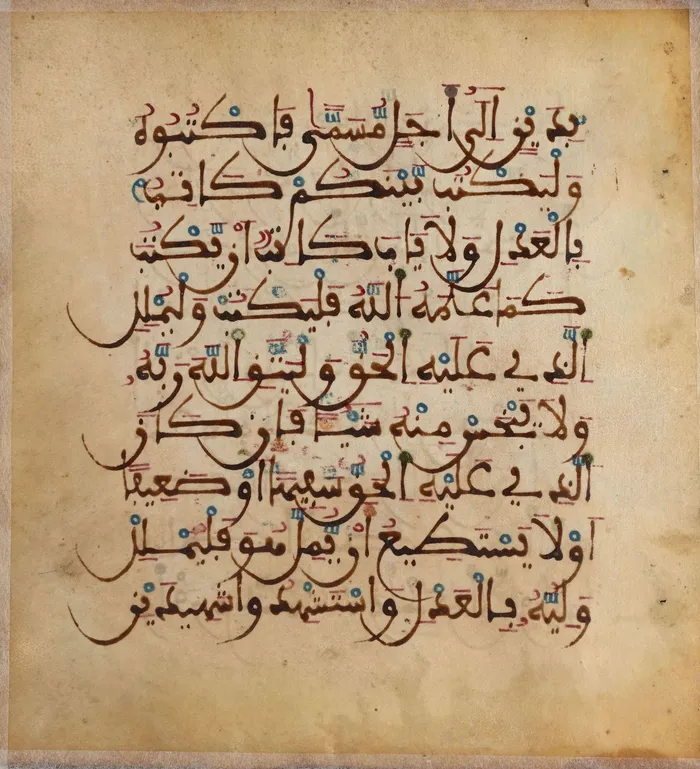 بدين الى اجل مسمى فاكتبوه
وليكتب بينكم كاتب
بالعدل ولا ياب كاتب ان يكتب
كما علمه الله فليكتب وليملل
الذي عليه الحق وليتق الله ربه
ولا يبخس منه شيا فان كان
الذي عليه الحق سفيها او ضعيفا
او لا يستطيع ان يمل هو فليملل
وليه بالعدل واستشهدوا شهيدين